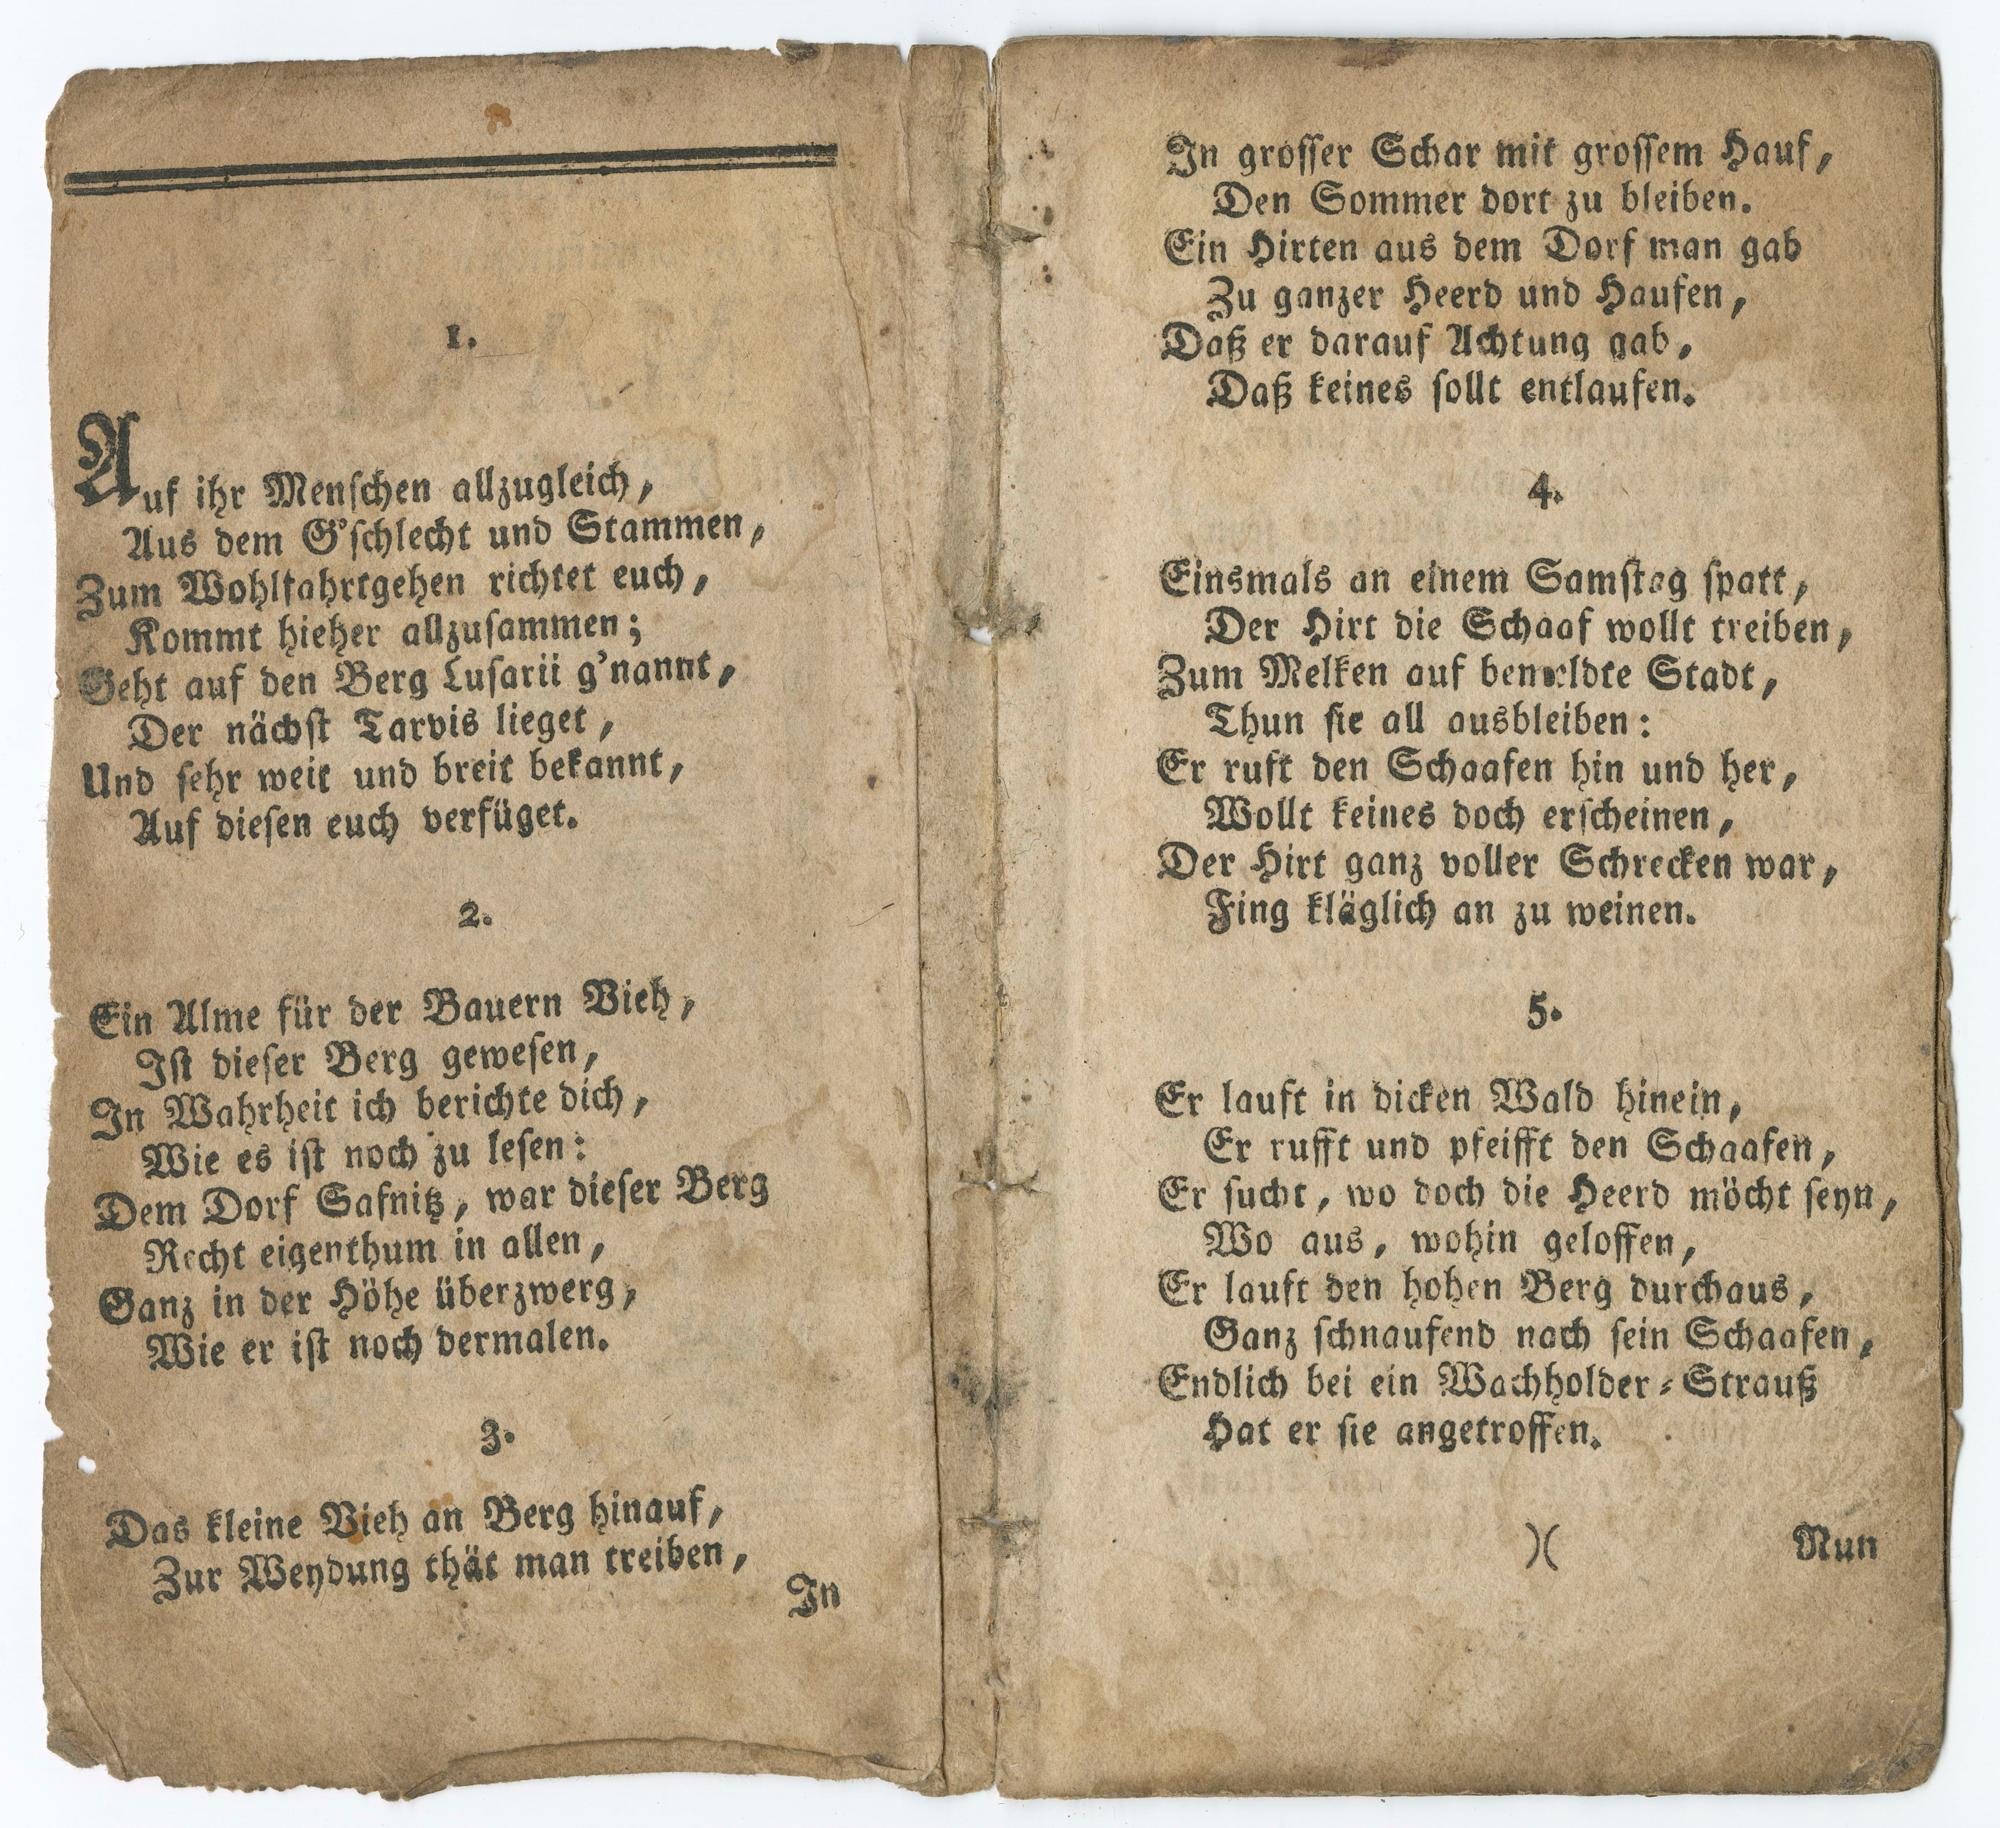 1.
Auf ihr Menschen allzugleich,
Aus dem G'schlecht und Stammen,
Zum Wohlfahrtgehen richtet euch,
Kommt hieher allzusammen;
Geht auf den Berg Lusarii g'nannt,
Der nächst Tarvis lieget,
Und sehr weit und breit bekannt,
Auf diesen euch verfüget.
2.
Ein Alme für der Bauern Vieh,
Ist dieser Berg gewesen,
In Wahrheit ich berichte dich,
Wie es ist noch zu lesen:
Dem Dorf Safnitz, war dieser Berg
Recht eigenthum in allen,
Ganz in der Höhe überzwerg,
Wie er ist noch dermalen.
3.
Das kleine Vieh an Berg hinauf,
Zur Weydung thät man treiben,
In
In grosser Schar mit grossem Hauf,
Den Sommer dort zu bleiben.
Ein Hirten aus dem Dorf man gab
Zu ganzer Heerd und Haufen,
Daß er darauf Achtung gab,
Daß keines sollt entlaufen.
4.
Einsmals an einem Samstag spatt,
Der Hirt die Schaaf wollt treiben,
Zum Melken auf bemeldte Stadt,
Thun sie all ausbleiben:
Er ruft den Schaafen hin und her,
Wollt keines doch erscheinen,
Der Hirt ganz voller Schrecken war,
Fing kläglich an zu weinen.
5.
Er lauft in dicken Wald hinein,
Er rufft und pfeifft den Schaafen,
Er sucht, wo doch die Heerd möcht seyn,
Wo aus, wohin geloffen,
Er lauft den hohen Berg durchaus,
Ganz schnaufend nach sein Schaafen,
Endlich bei ein Wachholder-Strauß
Hat er sie angetroffen.
)( Nun